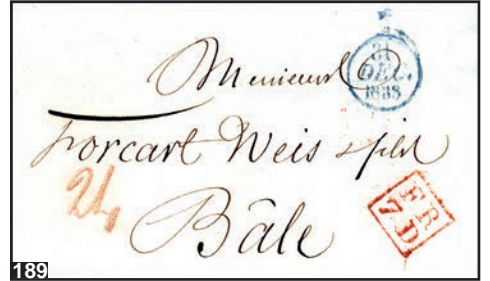 31
DEC.
1833
Messieurs
Forcart Weis & fils
24
Bâle
F.R.
7.D
189